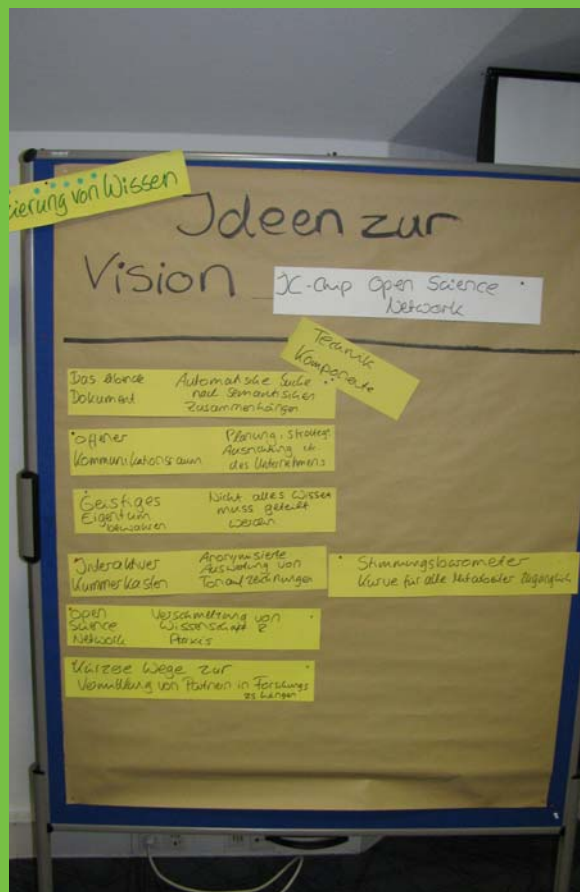 ierung von Wissen
Ideen zur
Vision
Open Science
Network
Technik
Komponente
Das Dokument
Automatische Suche
nach semantischen
Zusammenhängen
Offener
Kommunikationsraum
Planung, strateg.
Ausrichtung
des Unternehmens
Geistiges
Eigentum
bewahren
Nicht alles Wissen
muss geteilt
werden
Interaktiver
Kummerkasten
Anonymisierte
Auswertung von
Tonaufzeichnungen
Stimmungsbarometer
Kurve für alle Mitarbeiter zugänglich
Open
Science
Network
Verschmelzung von
Wissenschaft &
Praxis
Kürzere Wege zur
Vermittlung von Partnern in Forschungs